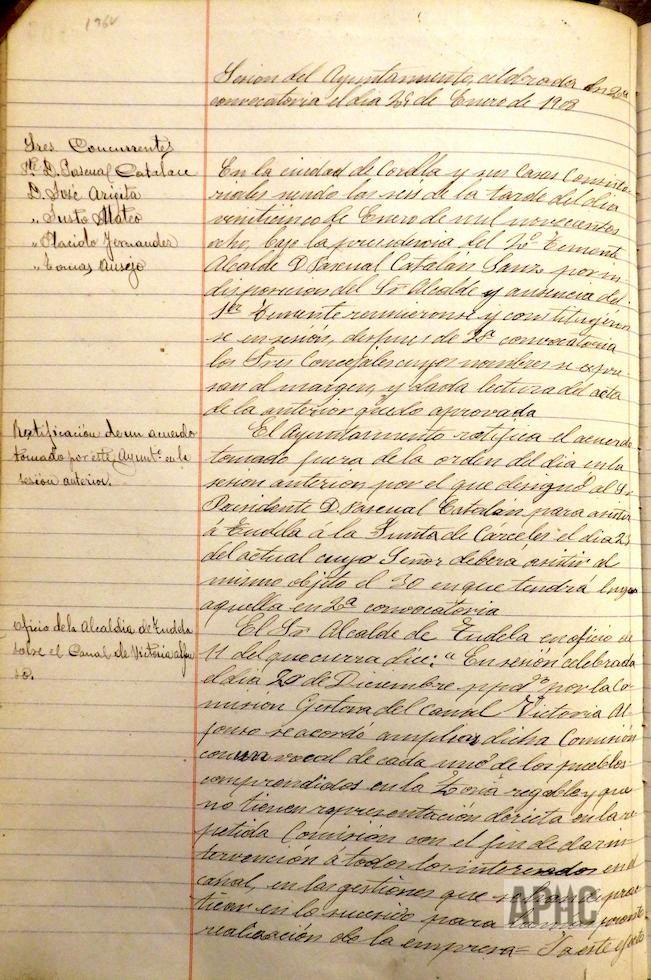 1962
Sesion del Ayuntamiento, celebrada en 2ª
convocatoria el dia 25 de Enero de 1908
Sres Concurrentes
D. Pascual Catalan
D. José Arigita
" Justo Mateo
" Placido Fernandez
" Tomas Ausejo
En la ciudad de Corella y sus Casas Consisto-
riales siendo las seis de la tarde del dia
veinticinco de Enero de mil novecientos
ocho, bajo la presidencia del 2º Teniente
Alcalde D Pascual Catalán Sanz por in-
disposicion del Sr Alcalde y ausencia del
1er Teniente reunieronse y constituyéron
se en sesión, despues de 2ª convocatoria
los Sres Concejales cuyos nombres se expre-
san al margen, y dada lectura del acta
de la anterior quedo aprovada
Ratificación de un acuerdo
tomado por este Ayuntº en la
sesión anterior.
El Ayuntamiento ratifica el acuerdo
tomado fuera de la orden del dia en la
sesion anterior por el que designó al Sr
Presidente D Pascual Catalán para asistir
á Tudela á la Junta de Cárceles el dia 23
del actual cuyo Señor deberá asistir al
mismo objeto el 30 en que tendrá lugar
aquella en 2ª convocatoria
Oficio de la Alcaldia de Tudela
sobre el Canal de Victoria Alfon
so.
El Sr Alcalde de Tudela en oficio de
11 del que cursa dice: "En sesión celebrada
el dia 20 de Diciembre ppdº por la Co-
misión Gestora del Canal Victoria Al-
fonso se acordó ampliar dicha Comisión
con un vocal de cada uno de los pueblos
comprendidos en la Zona regable y que
no tienen representación directa en la re-
petida Comisión con el fin de dar in-
tervención á todos los interesados en el
canal, en las gestiones que se prac-
tican en lo sucesivo para
realización de la empresa = Ya este
APHC